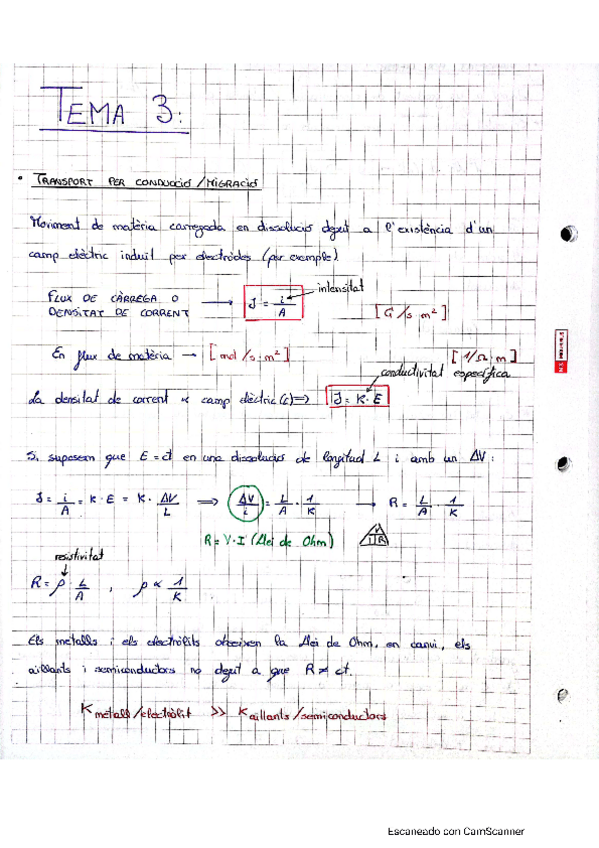 TEMA 3:
• TRANSPORT PER CONDUCCIÓ / MIGRACIÓ
Moviment de matèria carregada en dissolució degut a l'existència d'un
camp elèctric induït per electròdes (per exemple)
FLUX DE CÀRREGA O DENSITAT DE CORRENT → J = i/A intensitat [C/s·m²]
En flux de matèria → [mol/s·m²]
[1/Ω·m]
conductivitat específica
La densitat de corrent ∝ camp elèctric (ε) ⟹ J = K·E
Si suposem que E = ct en una dissolució de longitud L i amb un ΔV:
J = i/A = K·E = K·ΔV/L ⟹ ΔV/i = L/A·1/K → R = L/A·1/K
R = V·I (Llei de Ohm) V I R
resistivitat
R = ρ·L/A , ρ ∝ 1/K
Els metalls i els electròlits obeeixen la Llei de Ohm, en canvi, els
aïllants i semiconductors no degut a que R ≠ ct.
K metall/electròlit >> K aïllants/semiconductors
Escaneado con CamScanner